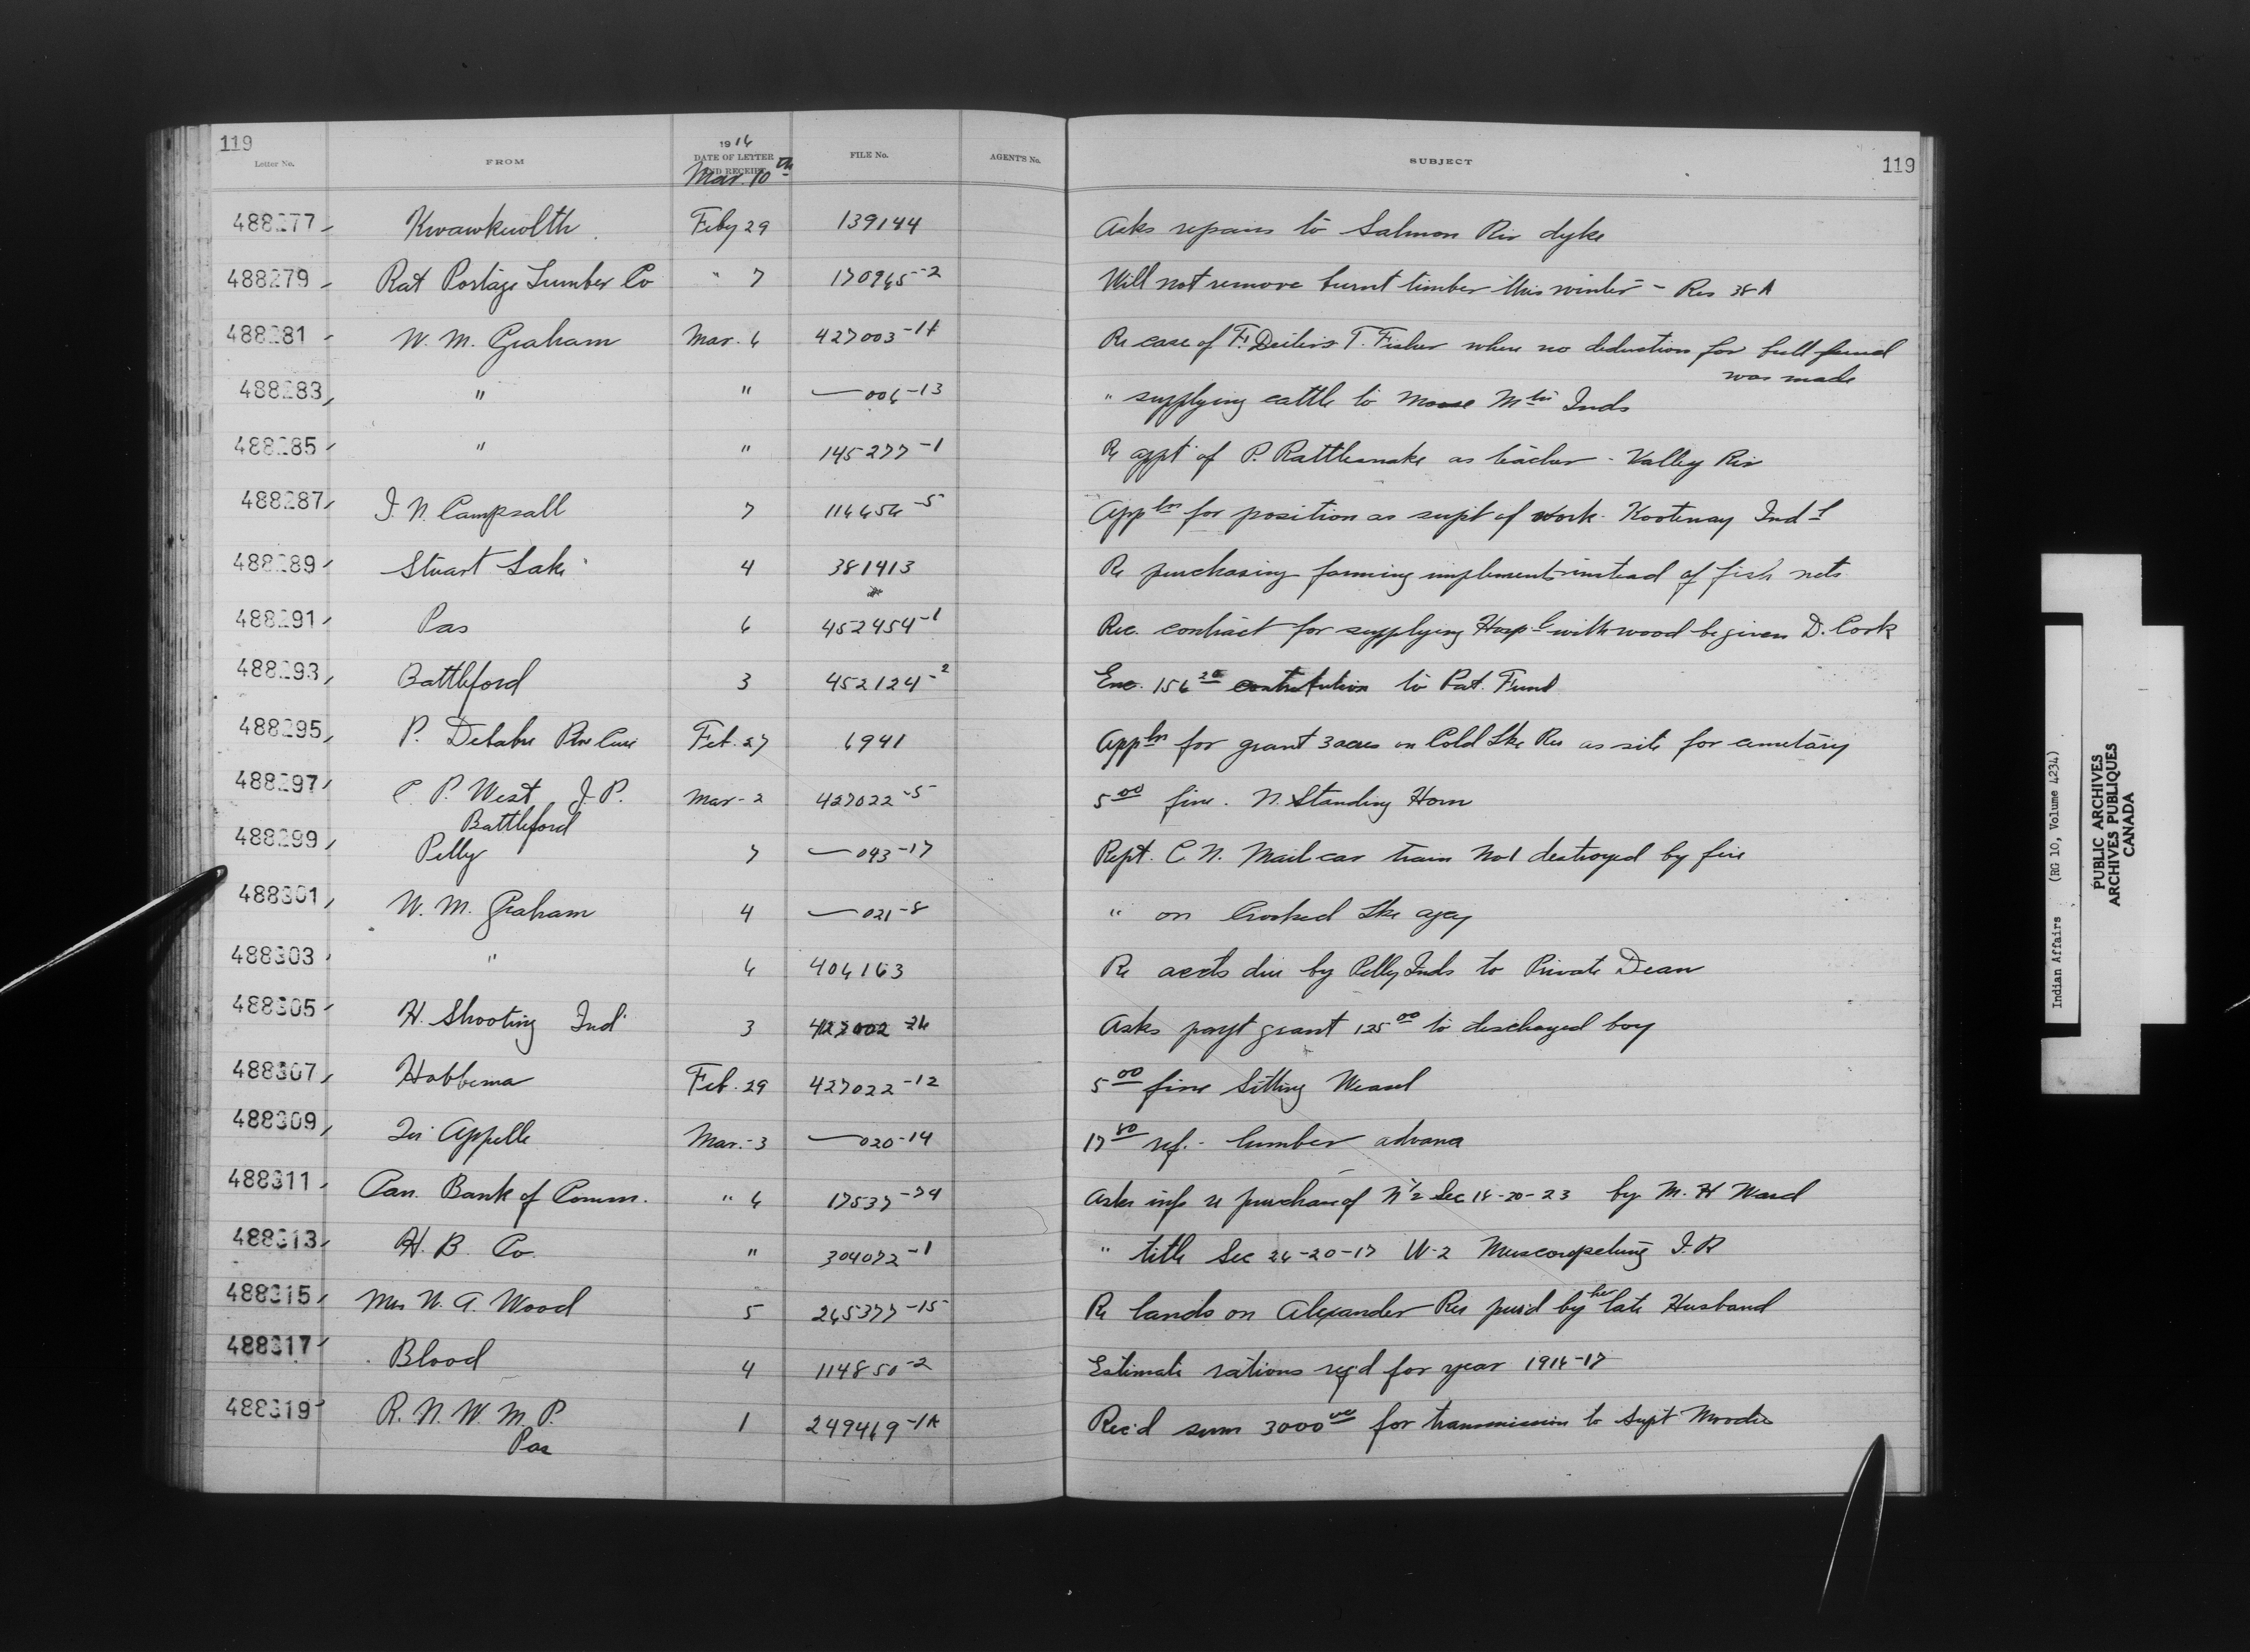 119
1916
Letter No. FROM DATE OF LETTER AND RECEIPT FILE No. AGENT'S No. SUBJECT 119
Mar. 10th
488277 Kwawkewlth Feby 29 139144 Asks repairs to Salmon Riv dyke
488279 Rat Portage Lumber Co " 7 170965-2 Will not remove burnt timber this winter - Res 38A
488281 W. M. Graham Mar. 6 427003-14 Re case of F. Deiter & T. Fisher where no deduction for bull fund
was made
488283 " " —006-13 " supplying cattle to Moose Mtn Inds
488285 " " 145277-1 Re appt of P. Rattlesnake as teacher - Valley Riv
488287 J. N. Campsall 7 116656-5 Appln for position as supt of work - Kootenay Indl
488289 Stuart Lake 4 381413 Re purchasing farming implements instead of fish nets
488291 Pas 6 452454-1 Rec. contract for supplying Hospl with wood be given D. Cook
488293 Battleford 3 452124-2 Enc. 156 20 contribution to Pat. Fund
488295 P. Feb. 27 6941 Appln for grant 3 acres on Cold Lke Res as site for cemetary
488297 C. P. West J. P. Mar - 2 427022-5 5 00 fine. N. Standing Horn
Battleford
488299 Pelly 7 —043-17 Rept. C. N. Mail car train No 1 destroyed by fire
488301 W. M. Graham 4 —021-8 " on Crooked Lke agcy
488303 " 6 406163 Re accts due by Pelly Inds to Private Dean
488305 H. Shooting Ind 3 427002-26 Asks payt grant 125 00 to discharged boy
488307 Hobbema Feb. 29 427022-12 5 00 fine Sitting Weasel
488309 Qu'Appelle Mar. 3 —020-14 17 80 ref. lumber advance
488311 Can. Bank of Comm. " 6 17537-74 Asks info re purchase of N 1/2 Sec 18-20-23 by M. H Ward
488313 H. B. Co. " 304072-1 " title Sec 26-20-17 W-2 Muscowpetung I. R
488315 Mrs W. A. Wood 5 265377-15 Re lands on Alexander Res purd by her late Husband
488317 Blood 4 114850-2 Estimate rations reqd for year 1916-17
488319 R. N. W. M. P. 1 249469-1A Rec'd sum 3000 00 for transmission to Supt Moodie
Pas
Indian Affairs (RG 10, Volume 4234)
PUBLIC ARCHIVES
ARCHIVES PUBLIQUES
CANADA